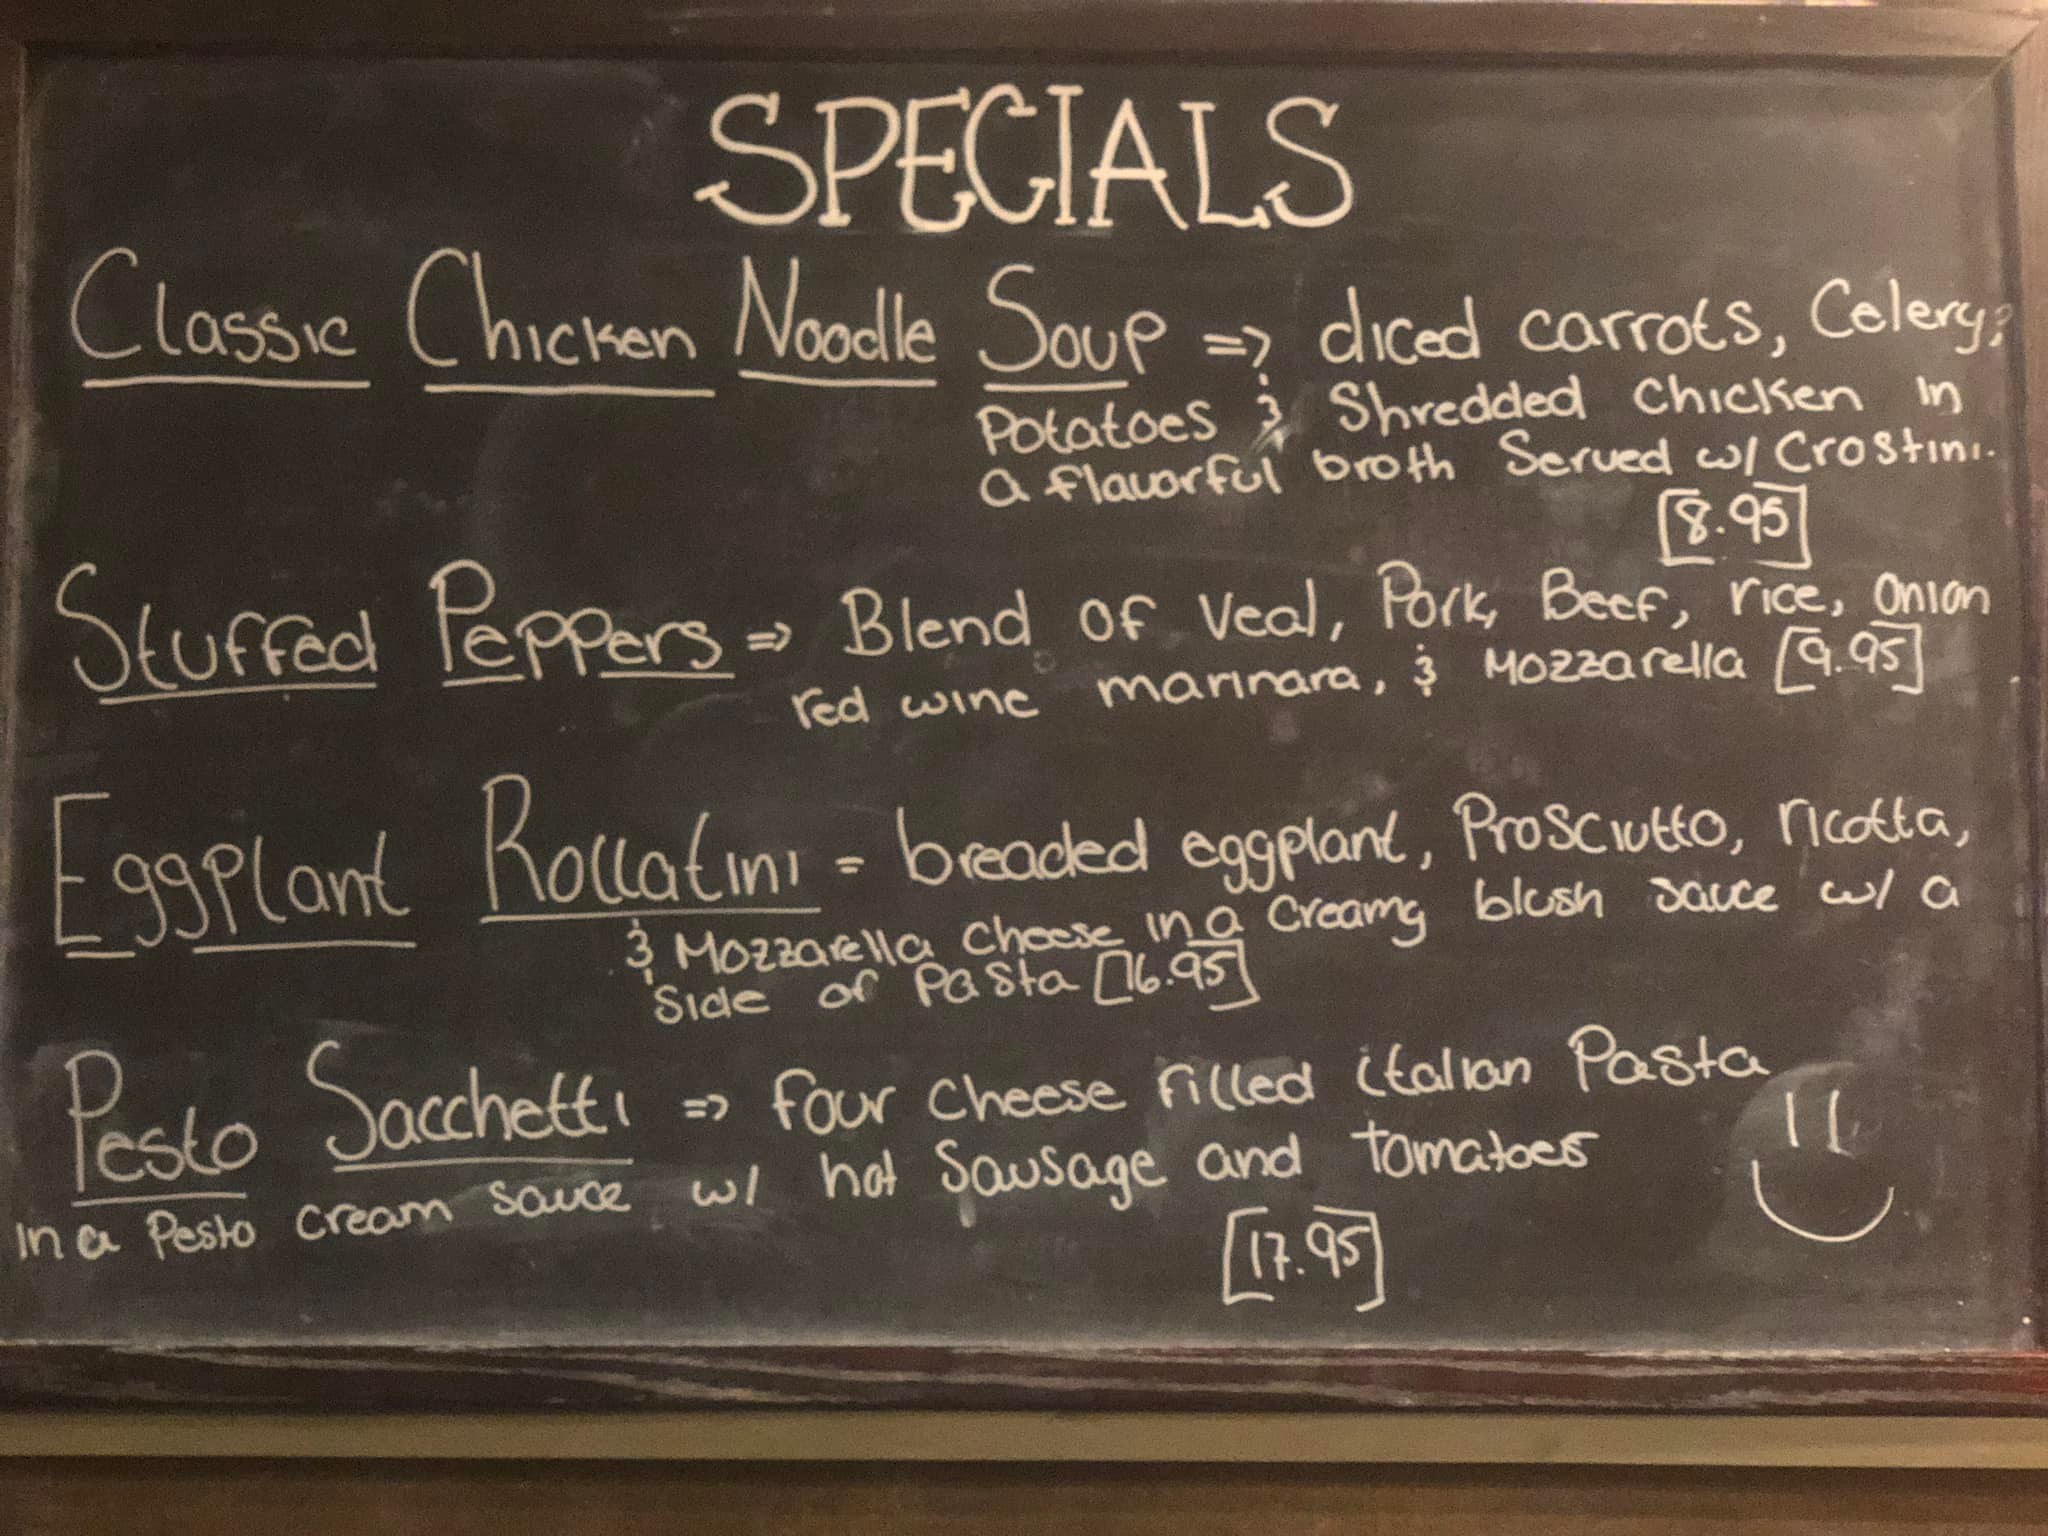 SPECIALS
Classic Chicken Noodle Soup => diced carrots, Celery,
Potatoes & Shredded chicken in
a flavorful broth Served w/ Crostini.
[8.95]
Stuffed Peppers => Blend of Veal, Pork, Beef, rice, onion
red wine marinara, & Mozzarella [9.95]
Eggplant Rollatini = breaded eggplant, Prosciutto, ricotta,
& Mozzarella cheese in a creamy blush sauce w/ a
side of Pasta [16.95]
Pesto Sacchetti => four cheese filled italian Pasta
in a Pesto cream sauce w/ hot Sausage and tomatoes
[17.95]